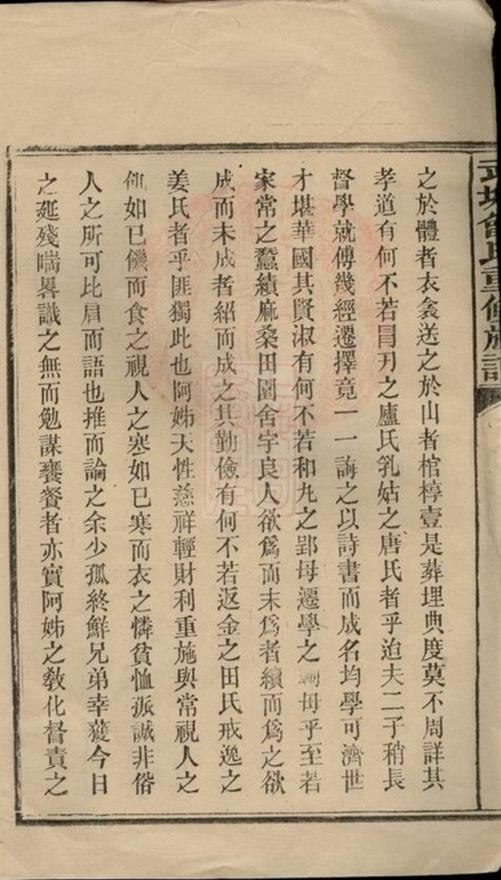 之於體者衣衾送之於山者棺椁壹是葬埋典度莫不周詳其
孝道有何不若冒刃之盧氏乳姑之唐氏者乎迨夫二子稍長
督學就傳幾經遷擇竟一一誨之以詩書而成名均學可濟世
才堪華國其賢淑有何不若和丸之郢母遷學之 母乎至若
家常之蠶績麻桑田園舍宇良人欲爲而未爲者續而爲之欲
成而未成者紹而成之其勤儉有何不若返金之田氏戒逸之
姜氏者乎匪獨此也阿姊天性慈祥輕財利重施與常視人之
飢如已饑而食之視人之寒如已寒而衣之憐貧恤孤誠非俗
人之所可比肩而語也推而論之余少孤終鮮兄弟幸獲今日
之延殘喘畧識之無而勉謀饔餐者亦實阿姊之敎化督責之
曾氏重修族譜